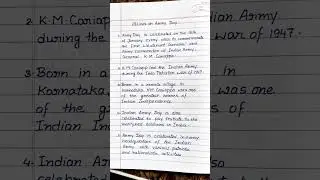 10 lines on Army Day
1. Army Day is celebrated on the 15th
of January every year to commemorate
the first Lieutenant General and
Army Commander of Indian Army,
General K.M. Cariappa.
2. K.M. Cariappa led the Indian Army
during the Indo Pakistan war of 1947.
3. Born in a small village in
Karnataka, K.M. Cariappa was one
of the greatest heroes of
Indian Independence.
4. Indian Army Day is also
celebrated to pay tribute to the
martyred soldiers in India.
5. Army Day is celebrated in every
headquarters of the Indian
Army with various patriotic
and nationalistic activities.
2. K.M. Cariappa
during the
war of 1947.
3. Born in a
Karnataka,
was one
of the
of
Indian
4. Indian A